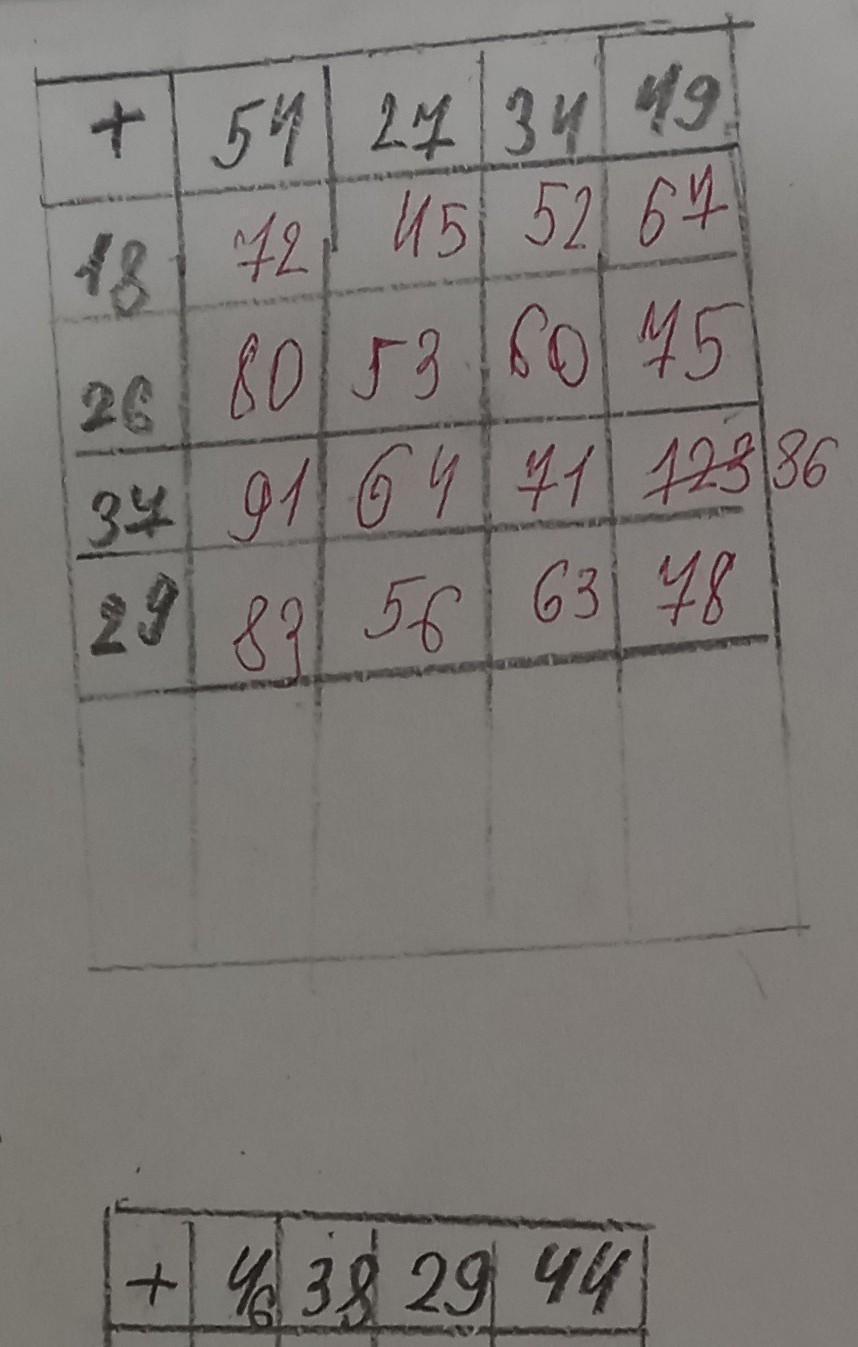 + 54 27 34 49
18 72 45 52 67
26 80 53 60 75
37 91 64 71 123 86
29 83 56 63 78
+ 46 38 29 44